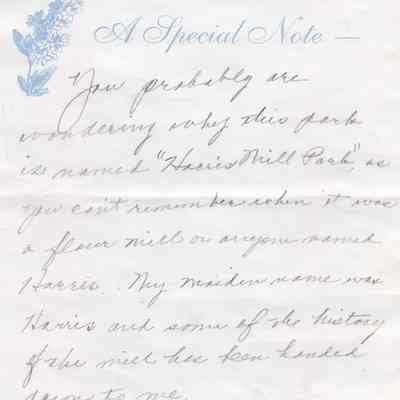 A Special Note —
You probably are
wondering why this park
is named "Harris Mill Park", as
you can't remember when it was
a flour mill or anyone named
Harris. My maiden name was
Harris and some of the history
of the mill has been handed
down to me.